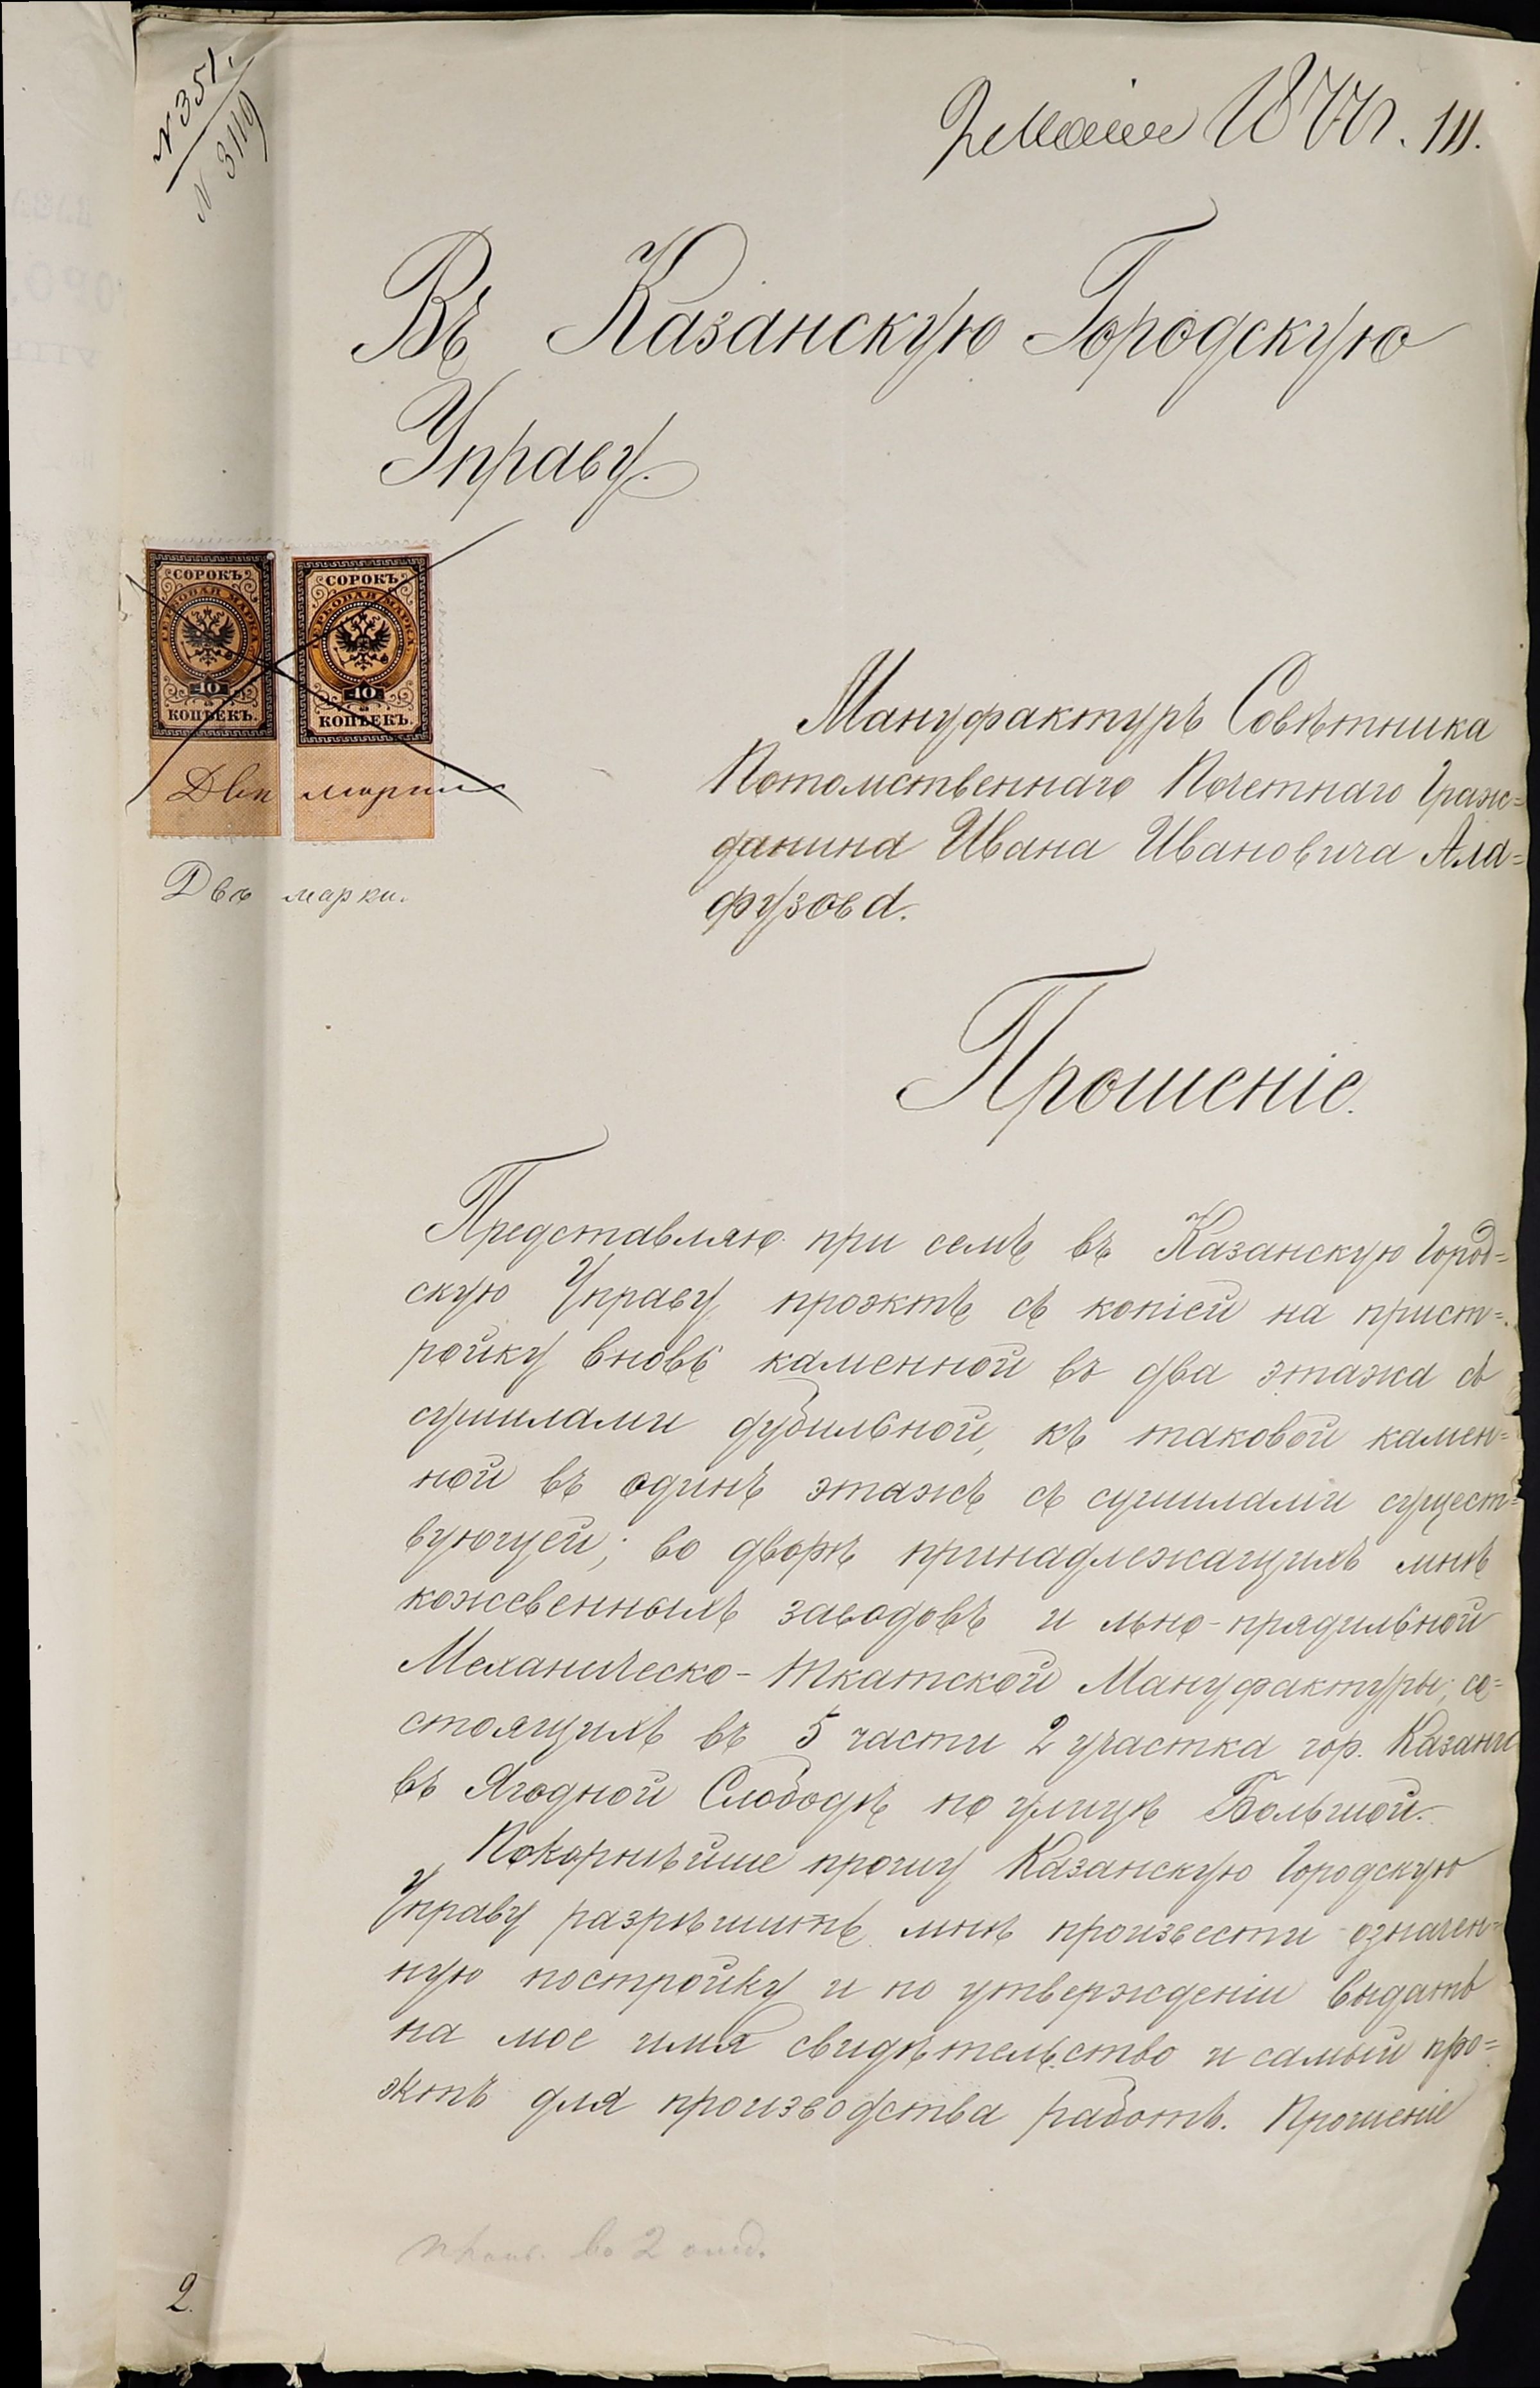 N 351.
N 3119
2 Маія 1877 г. III.
Въ Казанскую Городскую
Управу.
СОРОКЪ СОРОКЪ
ГЕРБОВАЯ МАРКА ГЕРБОВАЯ МАРКА
40 40
КОПѢЕКЪ. КОПѢЕКЪ.
Двѣ марки
Двѣ марки.
Мануфактуръ Совѣтника
Потомственнаго Почетнаго Граж=
данина Ивана Ивановича Ала=
фузова.
Прошеніе.
Представляю при семъ въ Казанскую Город=
скую Управу проэктъ съ копіей на прист=
ройку вновь каменной въ два этажа съ
сушилами дубильной, къ таковой камен=
ной въ одинъ этажъ съ сушилами сущест=
вующей; во дворѣ принадлежащихъ мнѣ
кожевенныхъ заводовъ и льно-прядильной
Механическо-Ткатской Мануфактуры, со=
стоящихъ въ 5 части 2 участка гор. Казани
въ Ягодной Слободѣ по улицѣ Большой.
Покорнѣйше прошу Казанскую Городскую
Управу разрѣшить мнѣ произвести означен=
ную постройку и по утвержденіи выдать
на мое имя свидѣтельство и самый про=
эктъ для производства работъ. Прошеніе
во 2 отд.
2.